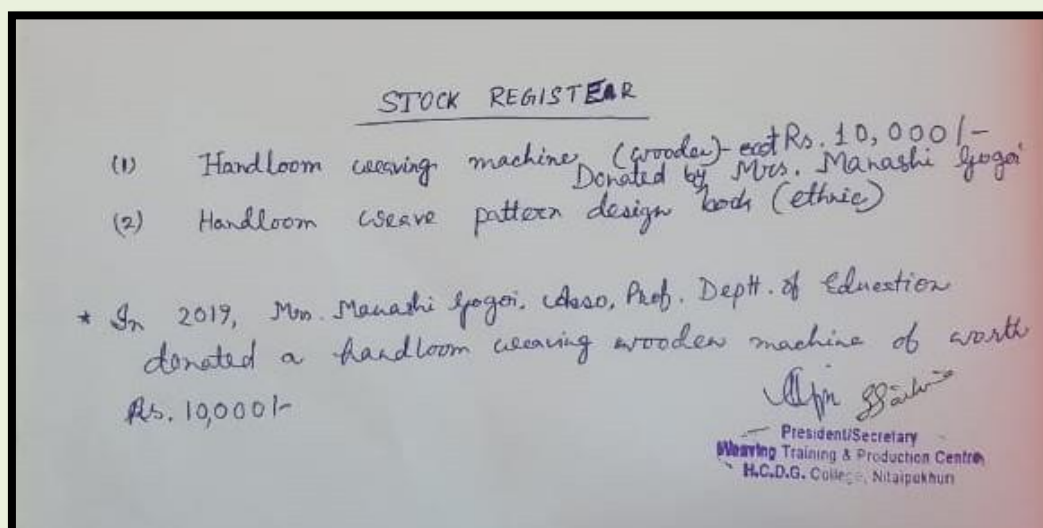 STOCK REGISTEAR
(1) Handloom weaving machine (wooden)- cost Rs. 10,000/-
Donated by Mrs. Manashi Gogoi
(2) Handloom weave pattern design book (ethnic)
* In 2019, Mrs. Manashi Gogoi, Asso. Prof. Deptt. of Education
donated a handloom weaving wooden machine of worth
Rs. 10,000/-
President/Secretary
Weaving Training & Production Centre
H.C.D.G. College, Nitaipukhuri